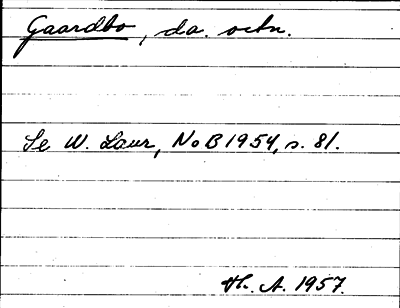 Gaardbo, da. ortn.
Se W. Laur, NoB 1954, s. 81.
Th. A. 1957